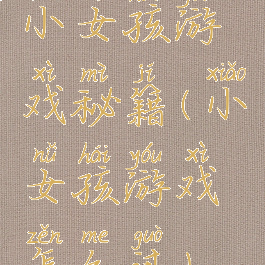 小女孩游
xì mì jí xiǎo
戏秘籍(小
nǚ hái yóu xì
女孩游戏
zěn me guò
怎么过)